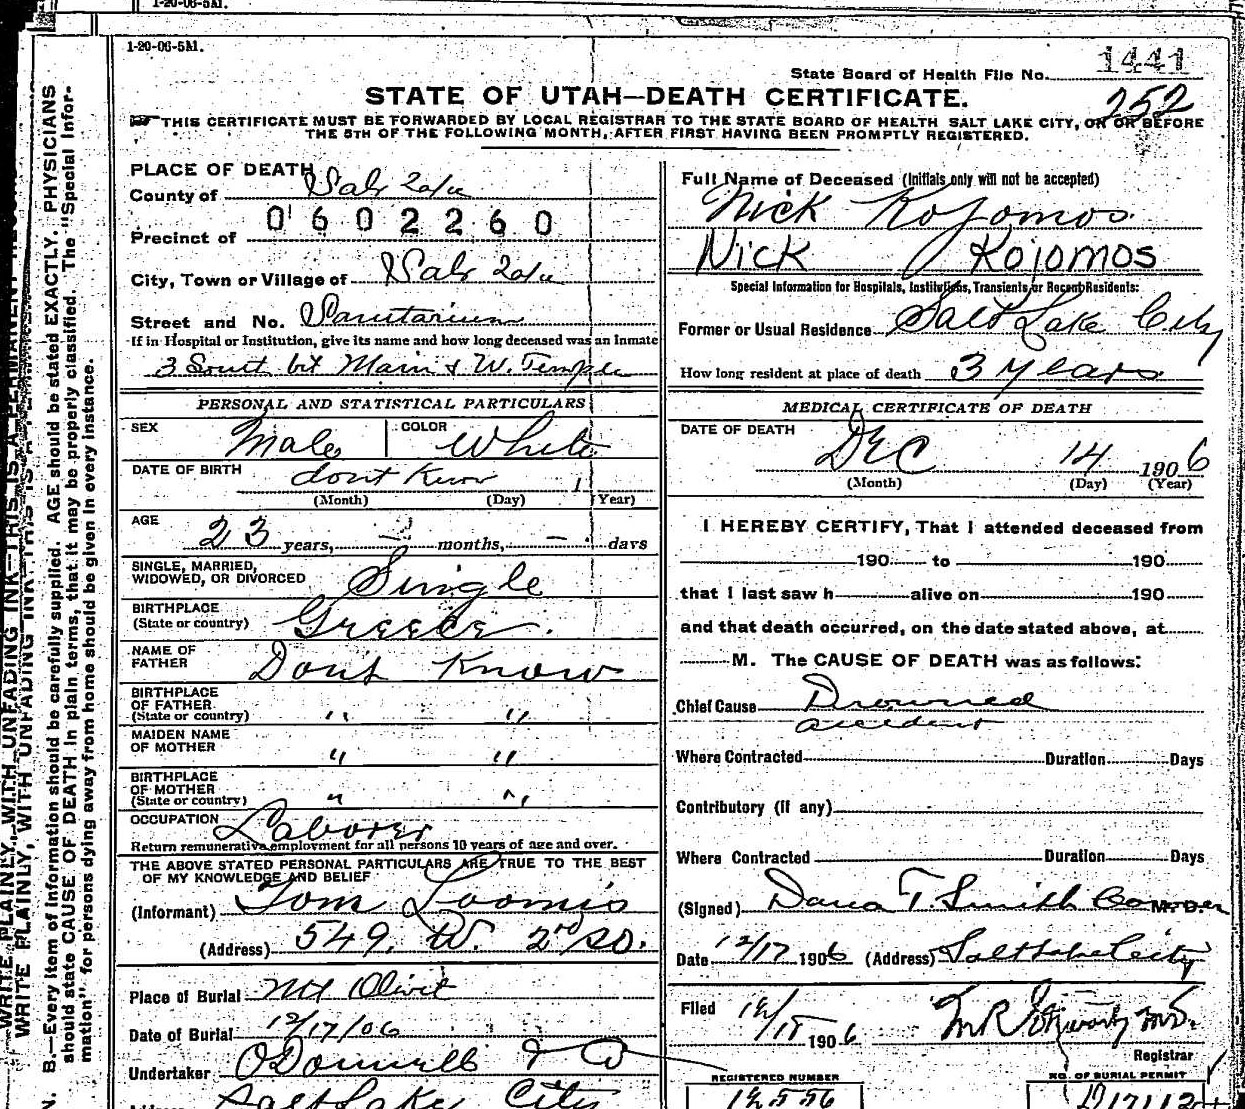 1-20-06-5M.
1-20-06-5M.
State Board of Health File No. 1441
252
STATE OF UTAH—DEATH CERTIFICATE.
THIS CERTIFICATE MUST BE FORWARDED BY LOCAL REGISTRAR TO THE STATE BOARD OF HEALTH SALT LAKE CITY, ON OR BEFORE
THE 5TH OF THE FOLLOWING MONTH, AFTER FIRST HAVING BEEN PROMPTLY REGISTERED.
WRITE PLAINLY, WITH UNFADING INK—THIS IS A PERMANENT
WRITE PLAINLY, WITH UNFADING INK—THIS IS A
N. B.—Every item of information should be carefully supplied. AGE should be stated EXACTLY. PHYSICIANS
should state CAUSE OF DEATH in plain terms, that it may be properly classified. The "Special Infor-
mation" for persons dying away from home should be given in every instance.
PLACE OF DEATH
County of Salt Lake
0602260
Precinct of
City, Town or Village of Salt Lake
Street and No. Sanitarium
If in Hospital or Institution, give its name and how long deceased was an inmate
3 South bet Main & W. Temple
PERSONAL AND STATISTICAL PARTICULARS
SEX Male COLOR White
DATE OF BIRTH dont Know 1
(Month) (Day) (Year)
AGE 23 years, — months, — days
SINGLE, MARRIED,
WIDOWED, OR DIVORCED Single
BIRTHPLACE
(State or country) Greece.
NAME OF
FATHER Dont Know
BIRTHPLACE
OF FATHER
(State or country) " "
MAIDEN NAME
OF MOTHER " "
BIRTHPLACE
OF MOTHER
(State or country) " "
OCCUPATION Laborer
Return remunerative employment for all persons 10 years of age and over.
THE ABOVE STATED PERSONAL PARTICULARS ARE TRUE TO THE BEST
OF MY KNOWLEDGE AND BELIEF
(Informant) Tom Loomis
(Address) 549. W. 2nd So.
Place of Burial Mt Olivit
Date of Burial 12/17/06
Undertaker O'Donnell & Co
Salt Lake City
Full Name of Deceased (Initials only will not be accepted)
Nick Kojomos.
Nick Kojomos
Special Information for Hospitals, Institutions, Transients or Recent Residents:
Former or Usual Residence Salt Lake City
How long resident at place of death 3 years
MEDICAL CERTIFICATE OF DEATH
DATE OF DEATH
DEC 14 1906
(Month) (Day) (Year)
I HEREBY CERTIFY, That I attended deceased from
190 to 190
that I last saw h alive on 190
and that death occurred, on the date stated above, at
M. The CAUSE OF DEATH was as follows:
Chief Cause Drowned
accident
Where Contracted Duration Days
Contributory (if any)
Where Contracted Duration Days
(Signed) Dana T. Smith Coroner M. D.
Date 12/17 1906 (Address) Salt Lake City
Filed 12/18 1906 M.D.
Registrar
REGISTERED NUMBER
12556
NO. OF BURIAL PERMIT